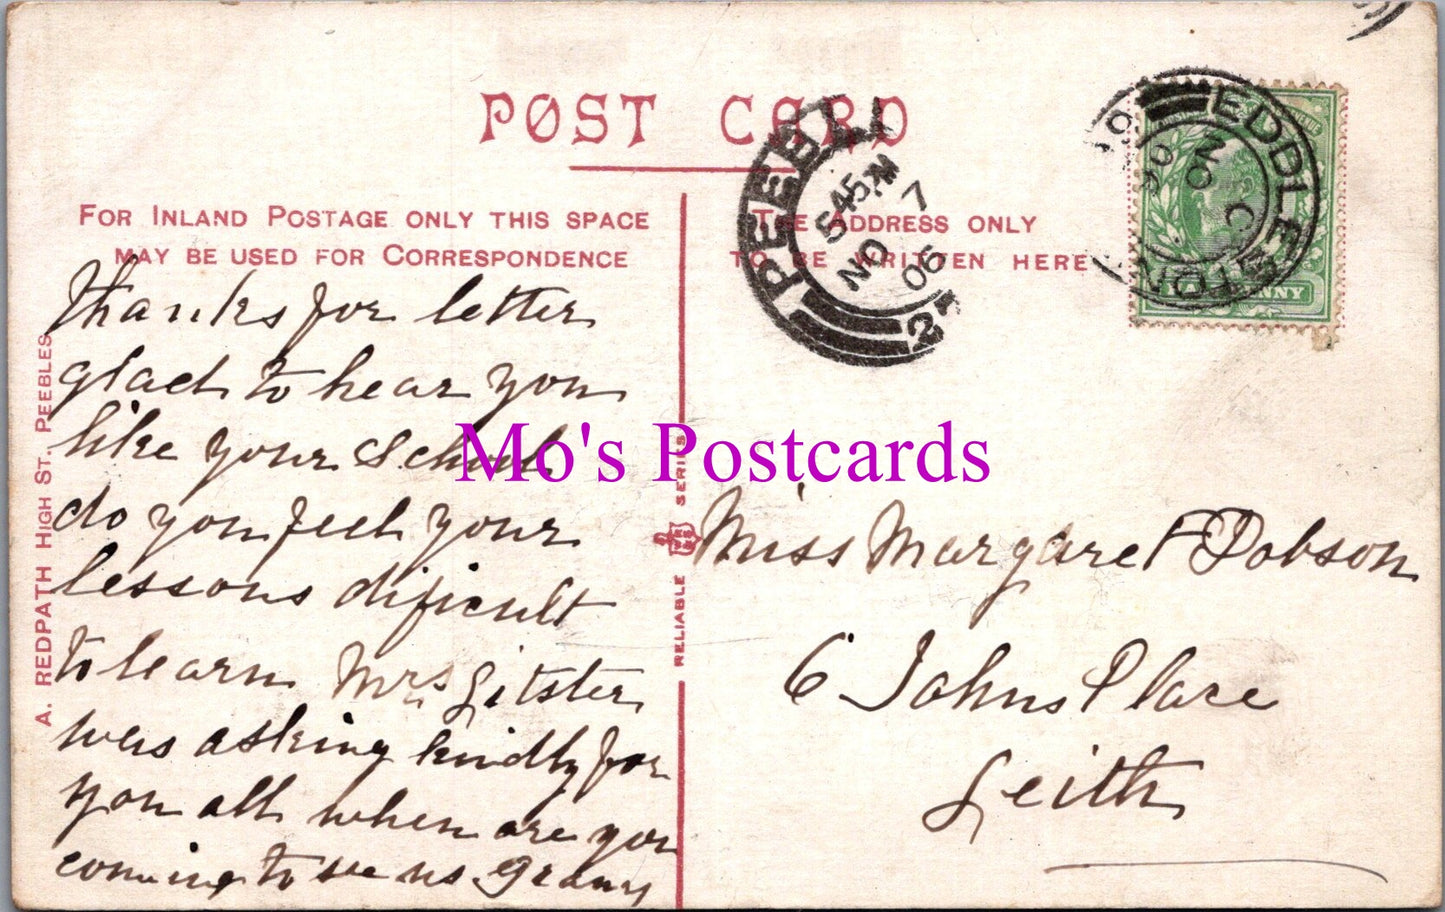 POST CARD
FOR INLAND POSTAGE ONLY THIS SPACE
MAY BE USED FOR CORRESPONDENCE
THE ADDRESS ONLY
TO BE WRITTEN HERE
PEEBL
545 PM
NO 7
06
EDDLESTON
NO
06
PENNY
A. REDPATH HIGH ST. PEEBLES
RELIABLE SERIES
Mo's Postcards
Thanks for letter
glad to hear you
like your School
do you feel your
lessons dificult
to learn Mrs
was asking kindly for
you all when are you
coming to see us Granny
Miss Margaret Dobson
6 Johns Place
Leith